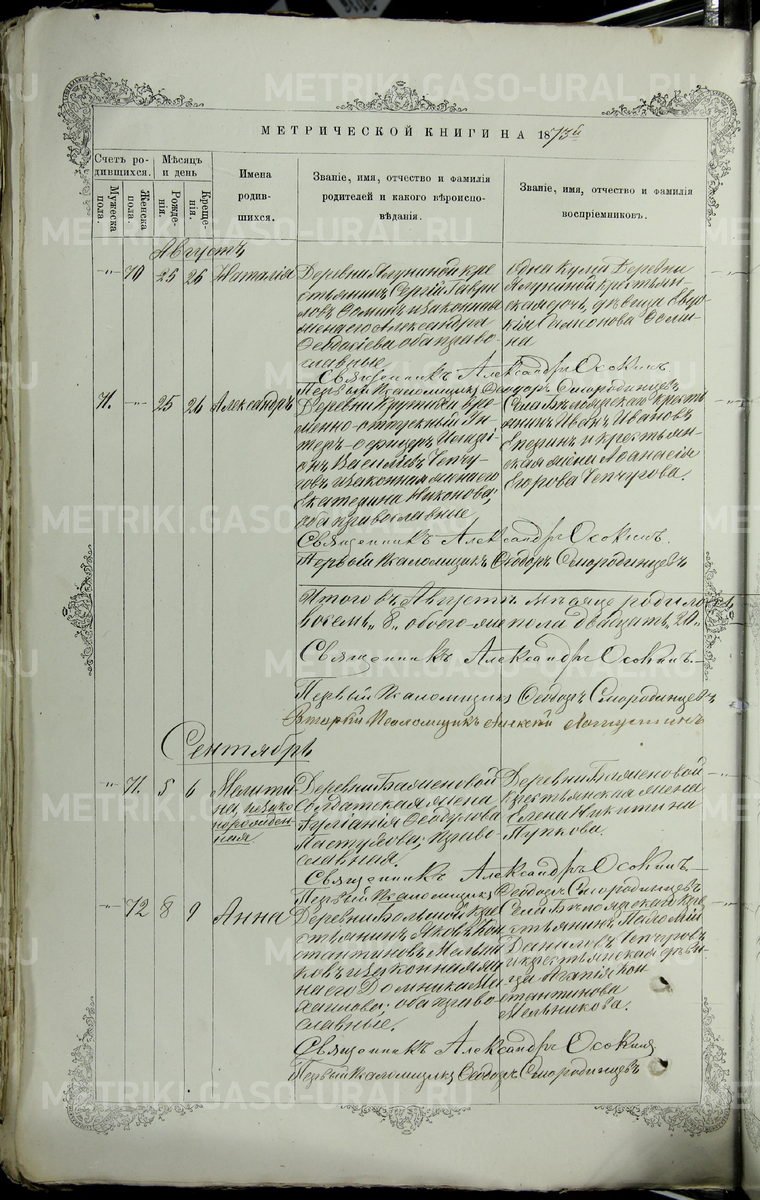 МЕТРИЧЕСКОЙ КНИГИ НА 1873й
Счетъ ро-
дившихся.
Мужеска
пола.
Женска
пола.
Мѣсяцъ
и день
Рожде-
нія.
Креще-
нія.
Имена
родив-
шихся.
Званіе, имя, отчество и фамилія
родителей и какого вѣроиспо-
вѣданія.
Званіе, имя, отчество и фамилія
воспріемниковъ.
Августъ
-"- 70 25 26 Наталія
Деревни кре
стьянинъ Сергій Гаври
ловъ Осминъ и законная
жена его Александра
оба право-
славные
Деревни
крестьян-
ская дочь, дѣвица Евдо
кія Осми
на
Священникъ Александръ Осокинъ.
Первый Псаломщикъ Ѳеодоръ Смородинцевъ
71. -"- 25 26 Александръ
Деревни вре
менно-отпускный Ун
теръ-офицеръ
Васильевъ Чепчу
говъ и законная жена его
Екатерина Никонова;
оба православные
Села Бѣлоярскаго кресть
янинъ Иванъ Ивановъ
и крестьян
ская жена Аѳанасія
Егорова Чепчугова.
Священникъ Александръ Осокинъ.
Первый Псаломщикъ Ѳеодоръ Смородинцевъ
Итого въ Августѣ мѣсяцѣ родилось
восемь „8„ обоего-же пола двадцать „20„
Священникъ Александръ Осокинъ.
Первый Псаломщикъ Ѳеодоръ Смородинцевъ
Вторый Псаломщикъ Алексѣй
Сентябрь
-"- 71. 5 6 Мелити
на незако
норожден
ная.
Деревни Баженовой
Солдатская жена
Іуліанія Ѳеодулова
Пастухова; право-
славная.
Деревни Баженовой
Крестьянская жена
Елена Никитина
Пупкова.
Священникъ Александръ Осокинъ
Первый Псаломщикъ Ѳеодоръ Смородинцевъ
-"- 72 8 9 Анна
Деревни Большой кре
стьянинъ Яковъ Кон
стантиновъ Мельни
ковъ и законная же
на его Домника Ми
хаилова; оба право-
славные.
Села Бѣлоярскаго кре
стьянинъ
Даниловъ Чепчуговъ
и крестьянская дѣви
ца Агапія Кон
стантинова
Мельникова.
Священникъ Александръ Осокинъ
Первый Псаломщикъ Ѳеодоръ Смородинцевъ
METRIKI.GASO-URAL.RU